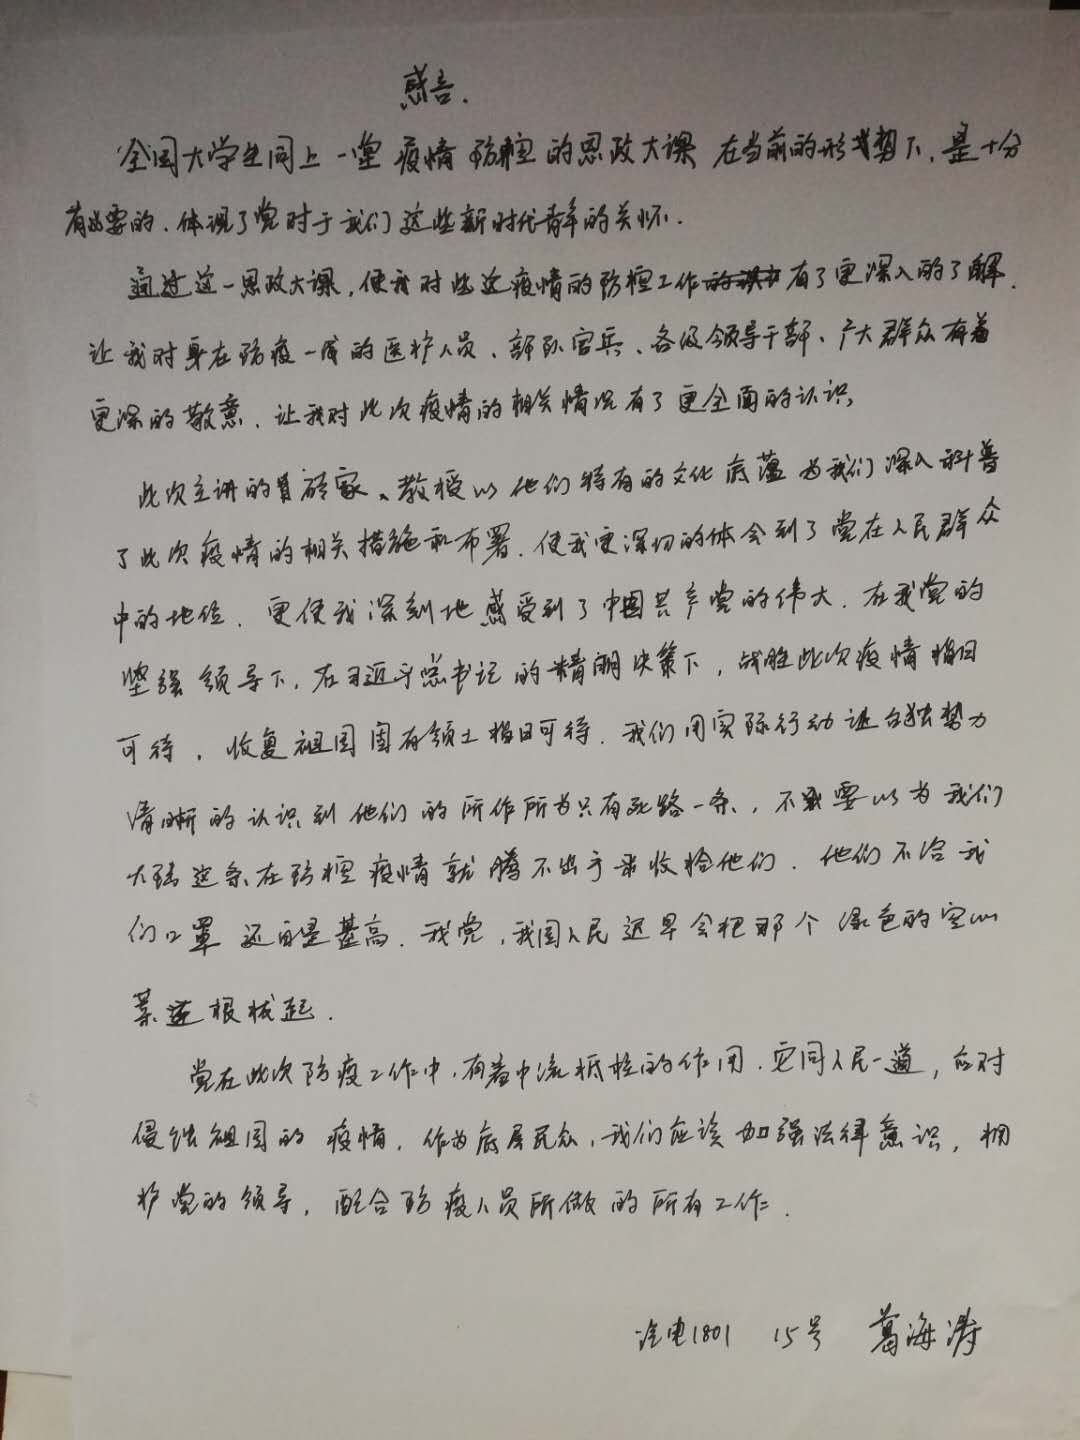 感言.
全国大学生同上一堂疫情防控的思政大课在当前的形势下,是十分
有必要的.体现了党对于我们这些新时代青年的关怀.
通过这一思政大课,使我对此这疫情的防控工作有了更深入的了解.
让我对身在防疫一线的医护人员、部队官兵、各级领导干部、广大群众有着
更深的敬意、让我对此次疫情的相关情况有了更全面的认识,
此次主讲的专家、教授以他们特有的文化底蕴为我们深入科普
了此次疫情的相关措施和布署.使我更深切的体会到了党在人民群众
中的地位.更使我深刻地感受到了中国共产党的伟大.在我党的
坚强领导下,在习近平总书记的精明决策下,战胜此次疫情指日
可待,收复祖国固有领土指日可待.我们用实际行动让台独势力
清晰的认识到他们的所作所为只有死路一条,不要以为我们
大陆这条在防控疫情就腾不出手来收拾他们.他们不给我
们口罩还自是甚高.我党,我国人民迟早会把那个绿色的空心
菜连根拔起.
党在此次防疫工作中,有着中流抵柱的作用.它同人民一道,应对
侵蚀祖国的疫情.作为底层民众,我们应该加强法律意识,拥
护党的领导,配合防疫人员所做的所有工作.
冶电1801 15号 葛海涛